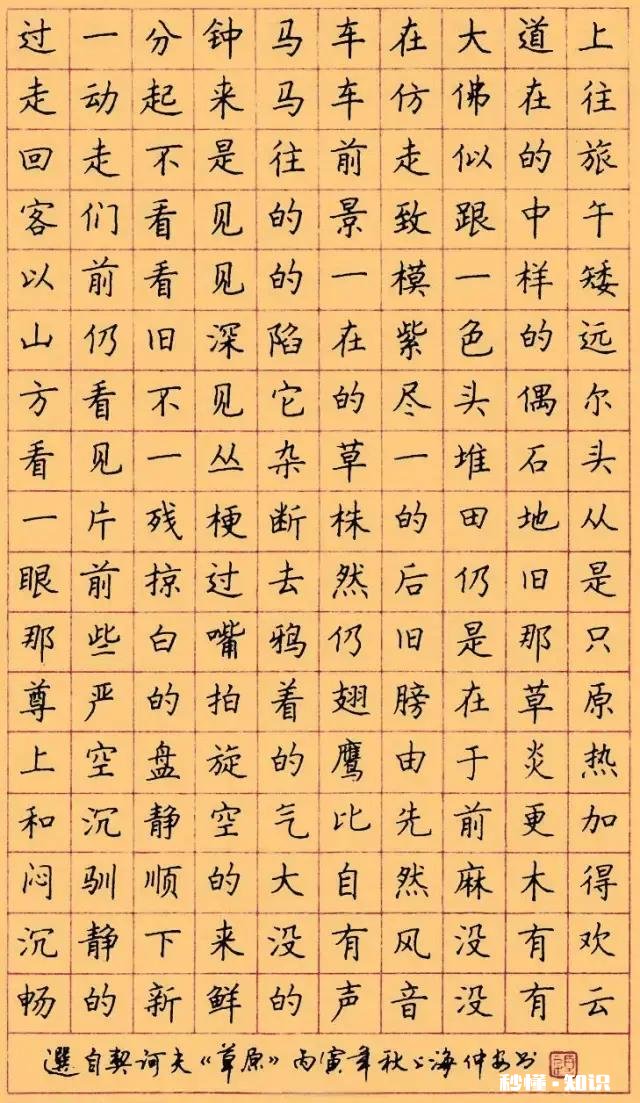 过一分钟马车在大道上
走动起来马车仿佛在往
回走不是往前走似的旅
客们看见的景致跟中午
以前看见的一模一样矮
山仍旧深陷在紫色的远
方看不见它的尽头偶尔
看见一丛杂草一堆石头
一片残梗断株的田地从
眼前掠过去然后仍旧是
那些白嘴鸦仍旧是那只
尊严的拍着翅膀在草原
上空盘旋的鹰由于炎热
和沉静空气比先前更加
闷驯顺的大自然麻木得
沉静下来没有风没有欢
畅的新鲜的声音没有云
選自契诃夫《草原》丙寅年秋上海仲安书
秒懂·知识